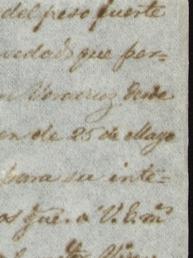 del peso fuerte
vedad que per=
Veracruz desde
en de 25 de Mayo
para su inte=
os que. a V.E. m.s